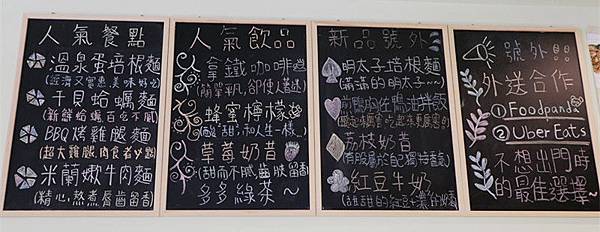 人氣餐點
溫泉蛋培根麵
(經濟又實惠,美味好吃)
干貝蛤蠣麵
(新鮮蛤蠣百吃不膩)
BBQ烤雞腿麵
(超大雞腿,肉食者必點)
米蘭嫩牛肉麵
(精心熬煮,唇齒留香)
人氣飲品
拿鐵咖啡
蜂蜜檸檬
(酸酸甜甜,和人生一樣)
草莓奶昔
(甜而不膩,齒頰留香)
多多綠茶~
新品號外
明太子培根麵
(滿滿的明太子~~)
荔枝奶昔
紅豆牛奶
號外!!!
外送合作
①Foodpanda
②Uber Eats
不想出門時
的最佳選擇~